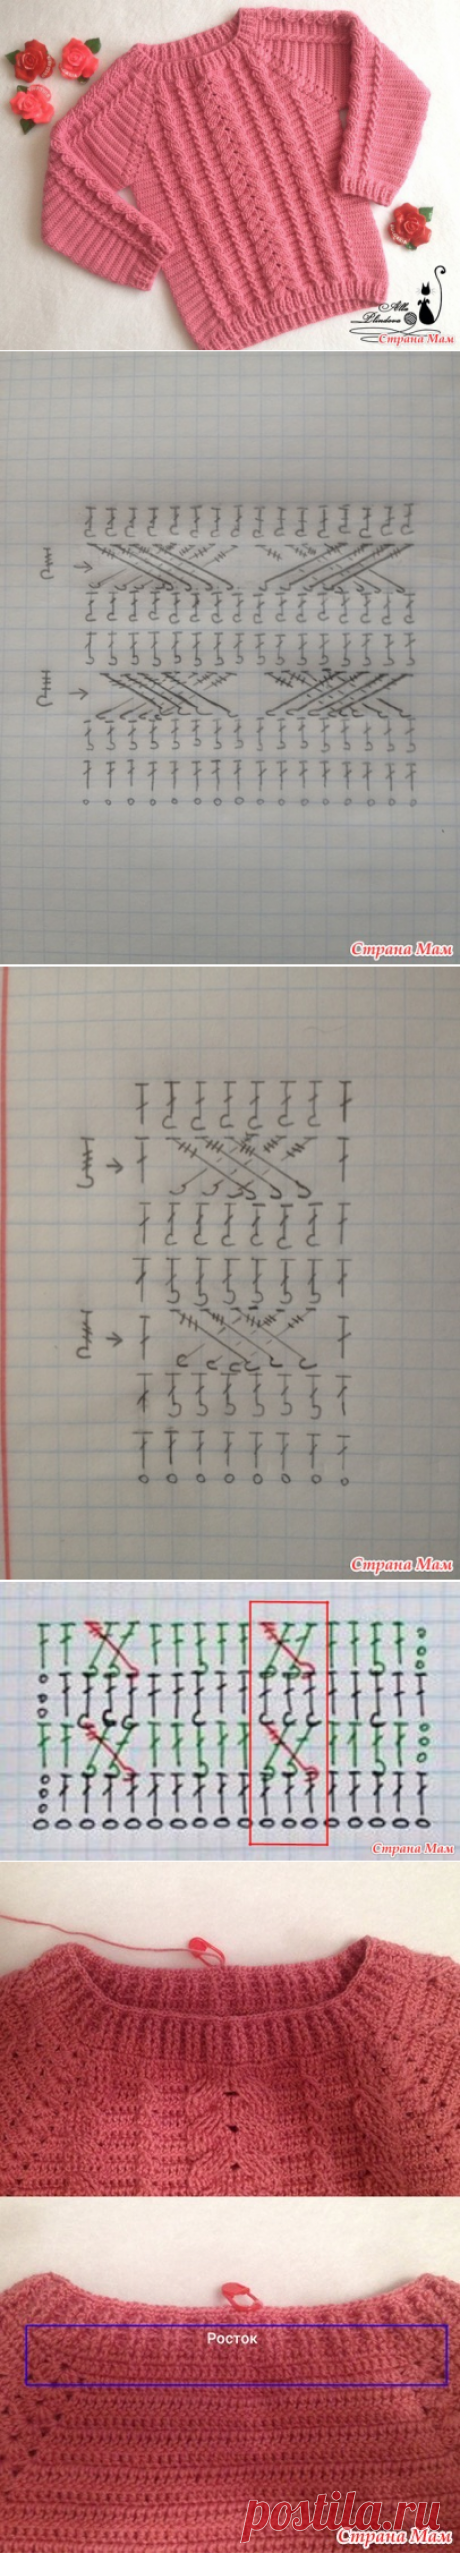 Alla
Страна Мам
Страна Мам
Страна Мам
Страна Мам
Росток
postila.ru
Страна Мам